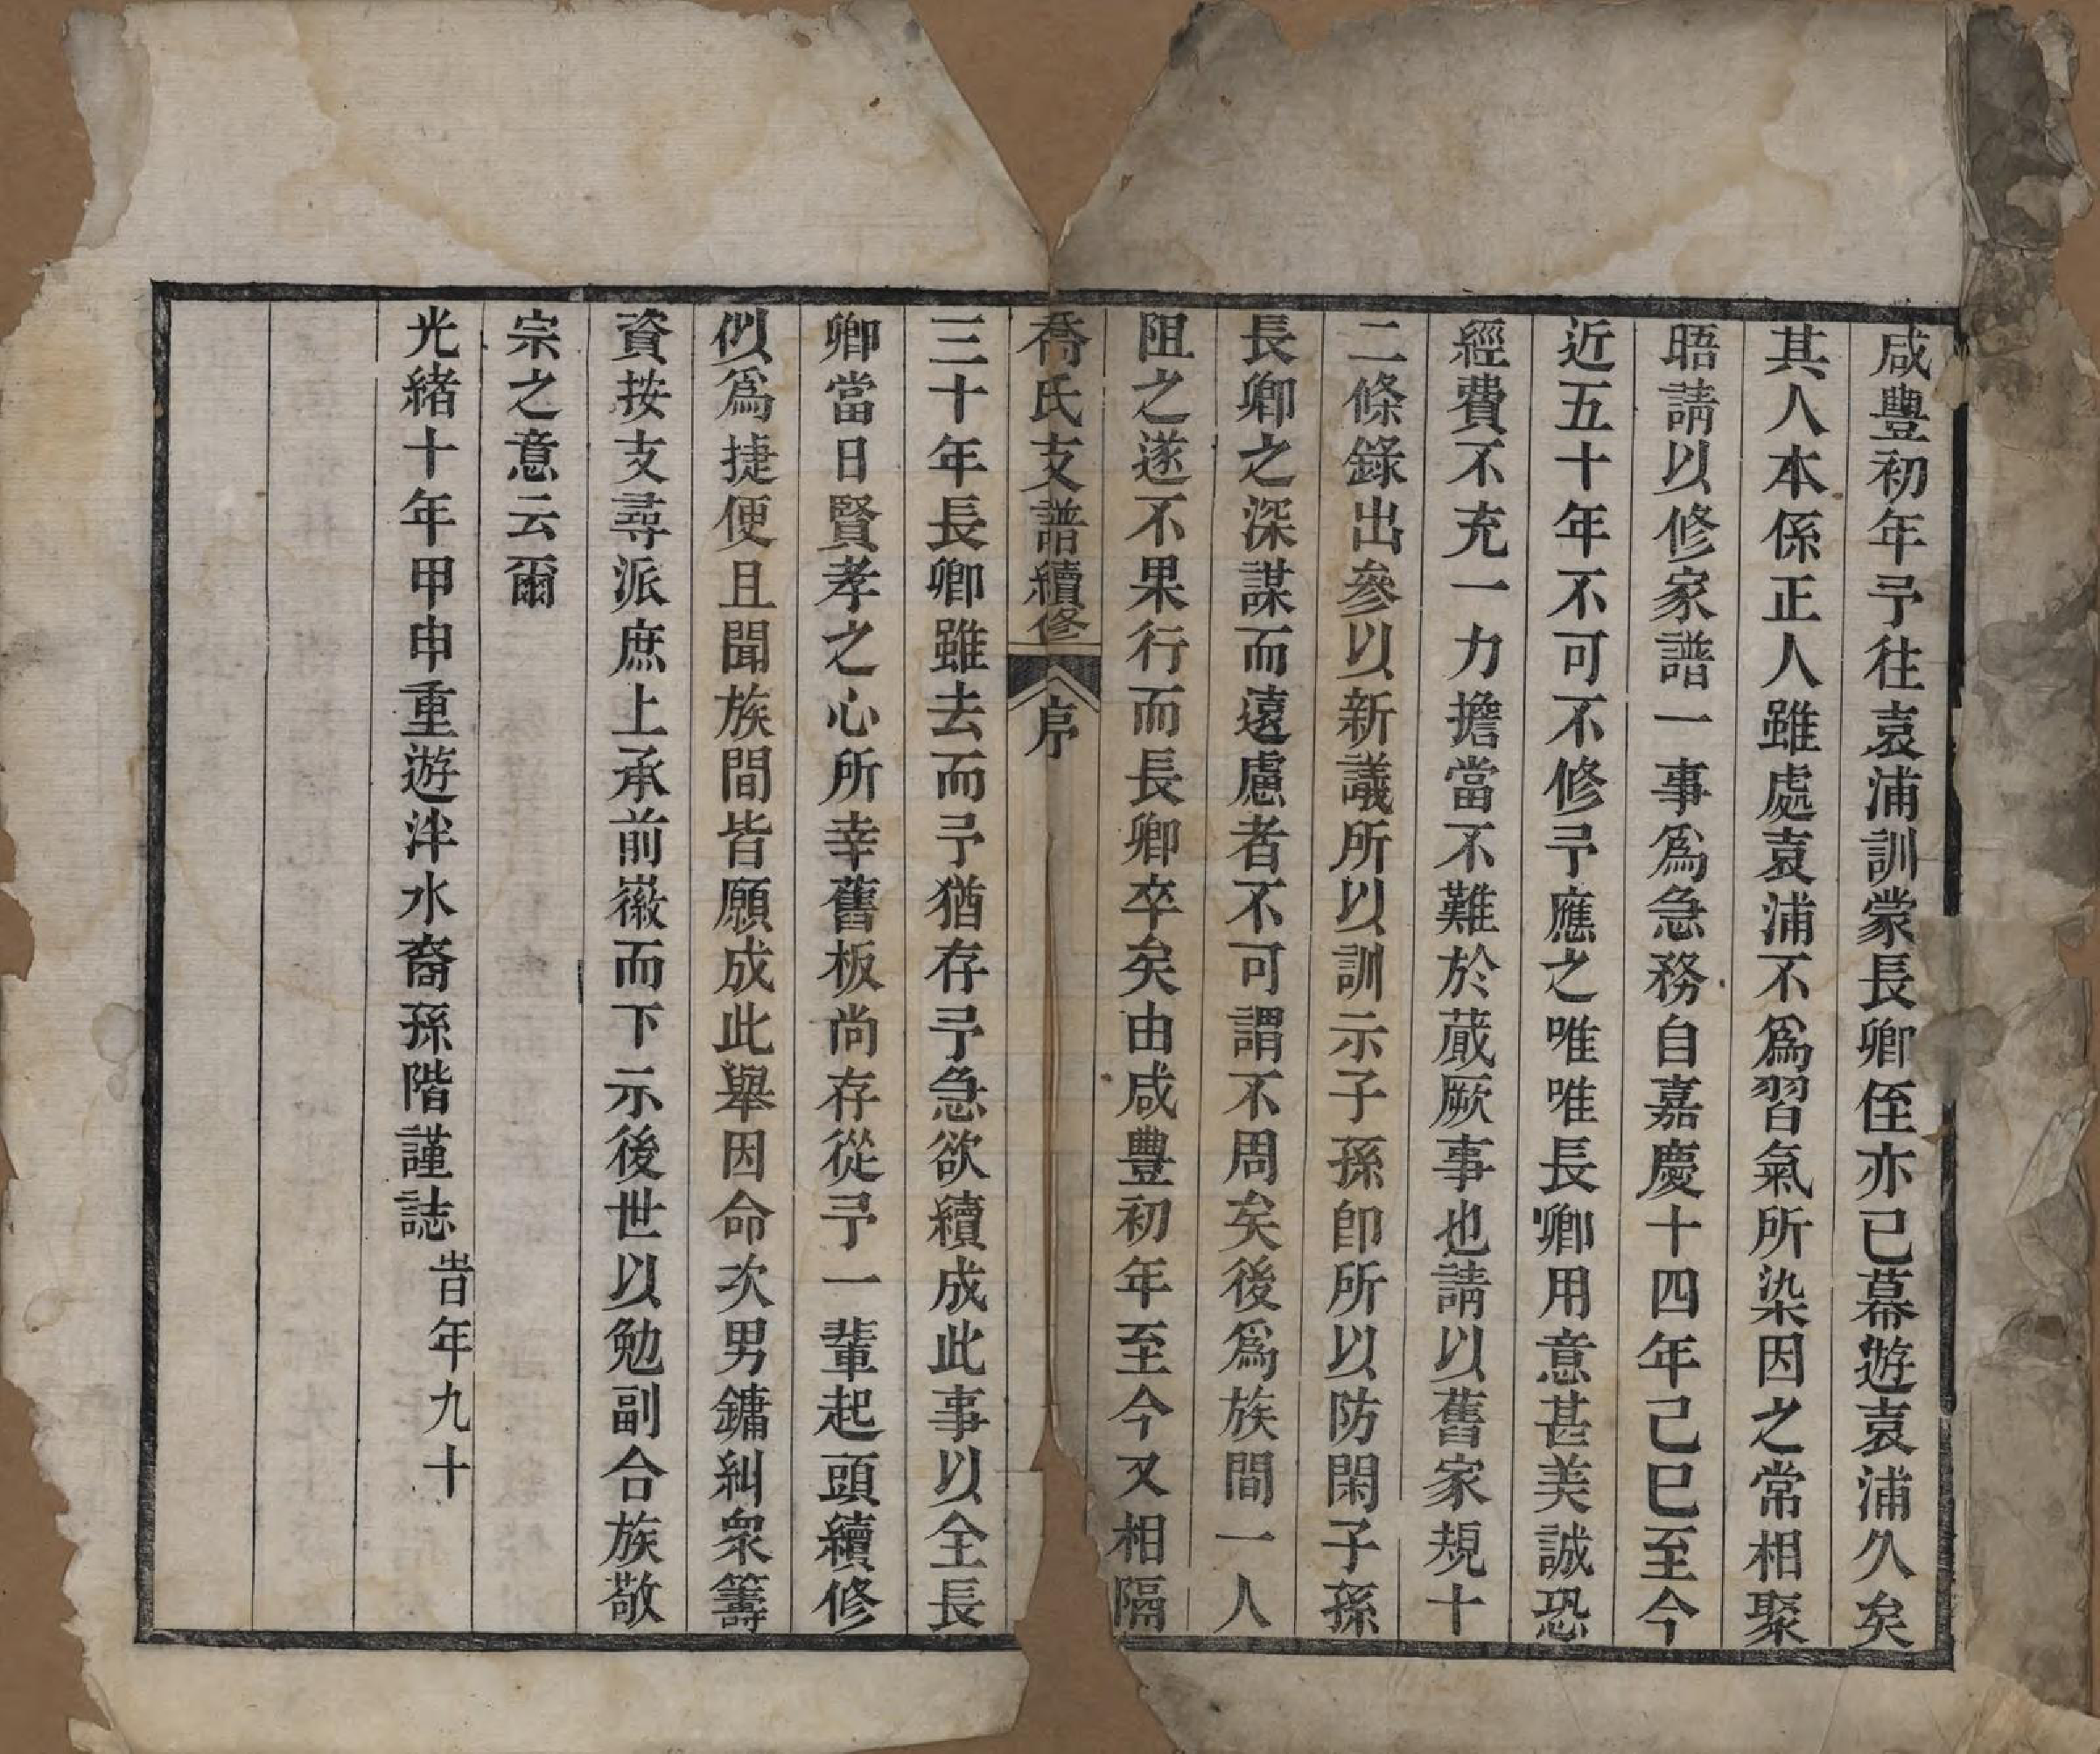 咸豐初年予往袁浦訓蒙長卿侄亦已幕遊袁浦久矣
其人本係正人雖處袁浦不爲習氣所染因之常相聚
晤請以修家譜一事爲急務自嘉慶十四年己巳至今
近五十年不可不修予應之唯唯長卿用意甚美誠恐
經費不充一力擔當不難於蕆厥事也請以舊家規十
二條錄出參以新議所以訓示子孫卽所以防閑子孫
長卿之深謀而遠慮者不可謂不周矣後爲族間一人
阻之遂不果行而長卿卒矣由咸豐初年至今又相隔
喬氏支譜續修 序
三十年長卿雖去而予猶存予急欲續成此事以全長
卿當日賢孝之心所幸舊板尚存從予一輩起頭續修
似爲捷便且聞族間皆願成此舉因命次男鏞糾衆籌
資按支尋派庶上承前徽而下示後世以勉副合族敬
宗之意云爾
光緒十年甲申重遊泮水裔孫階謹誌 旹年九十